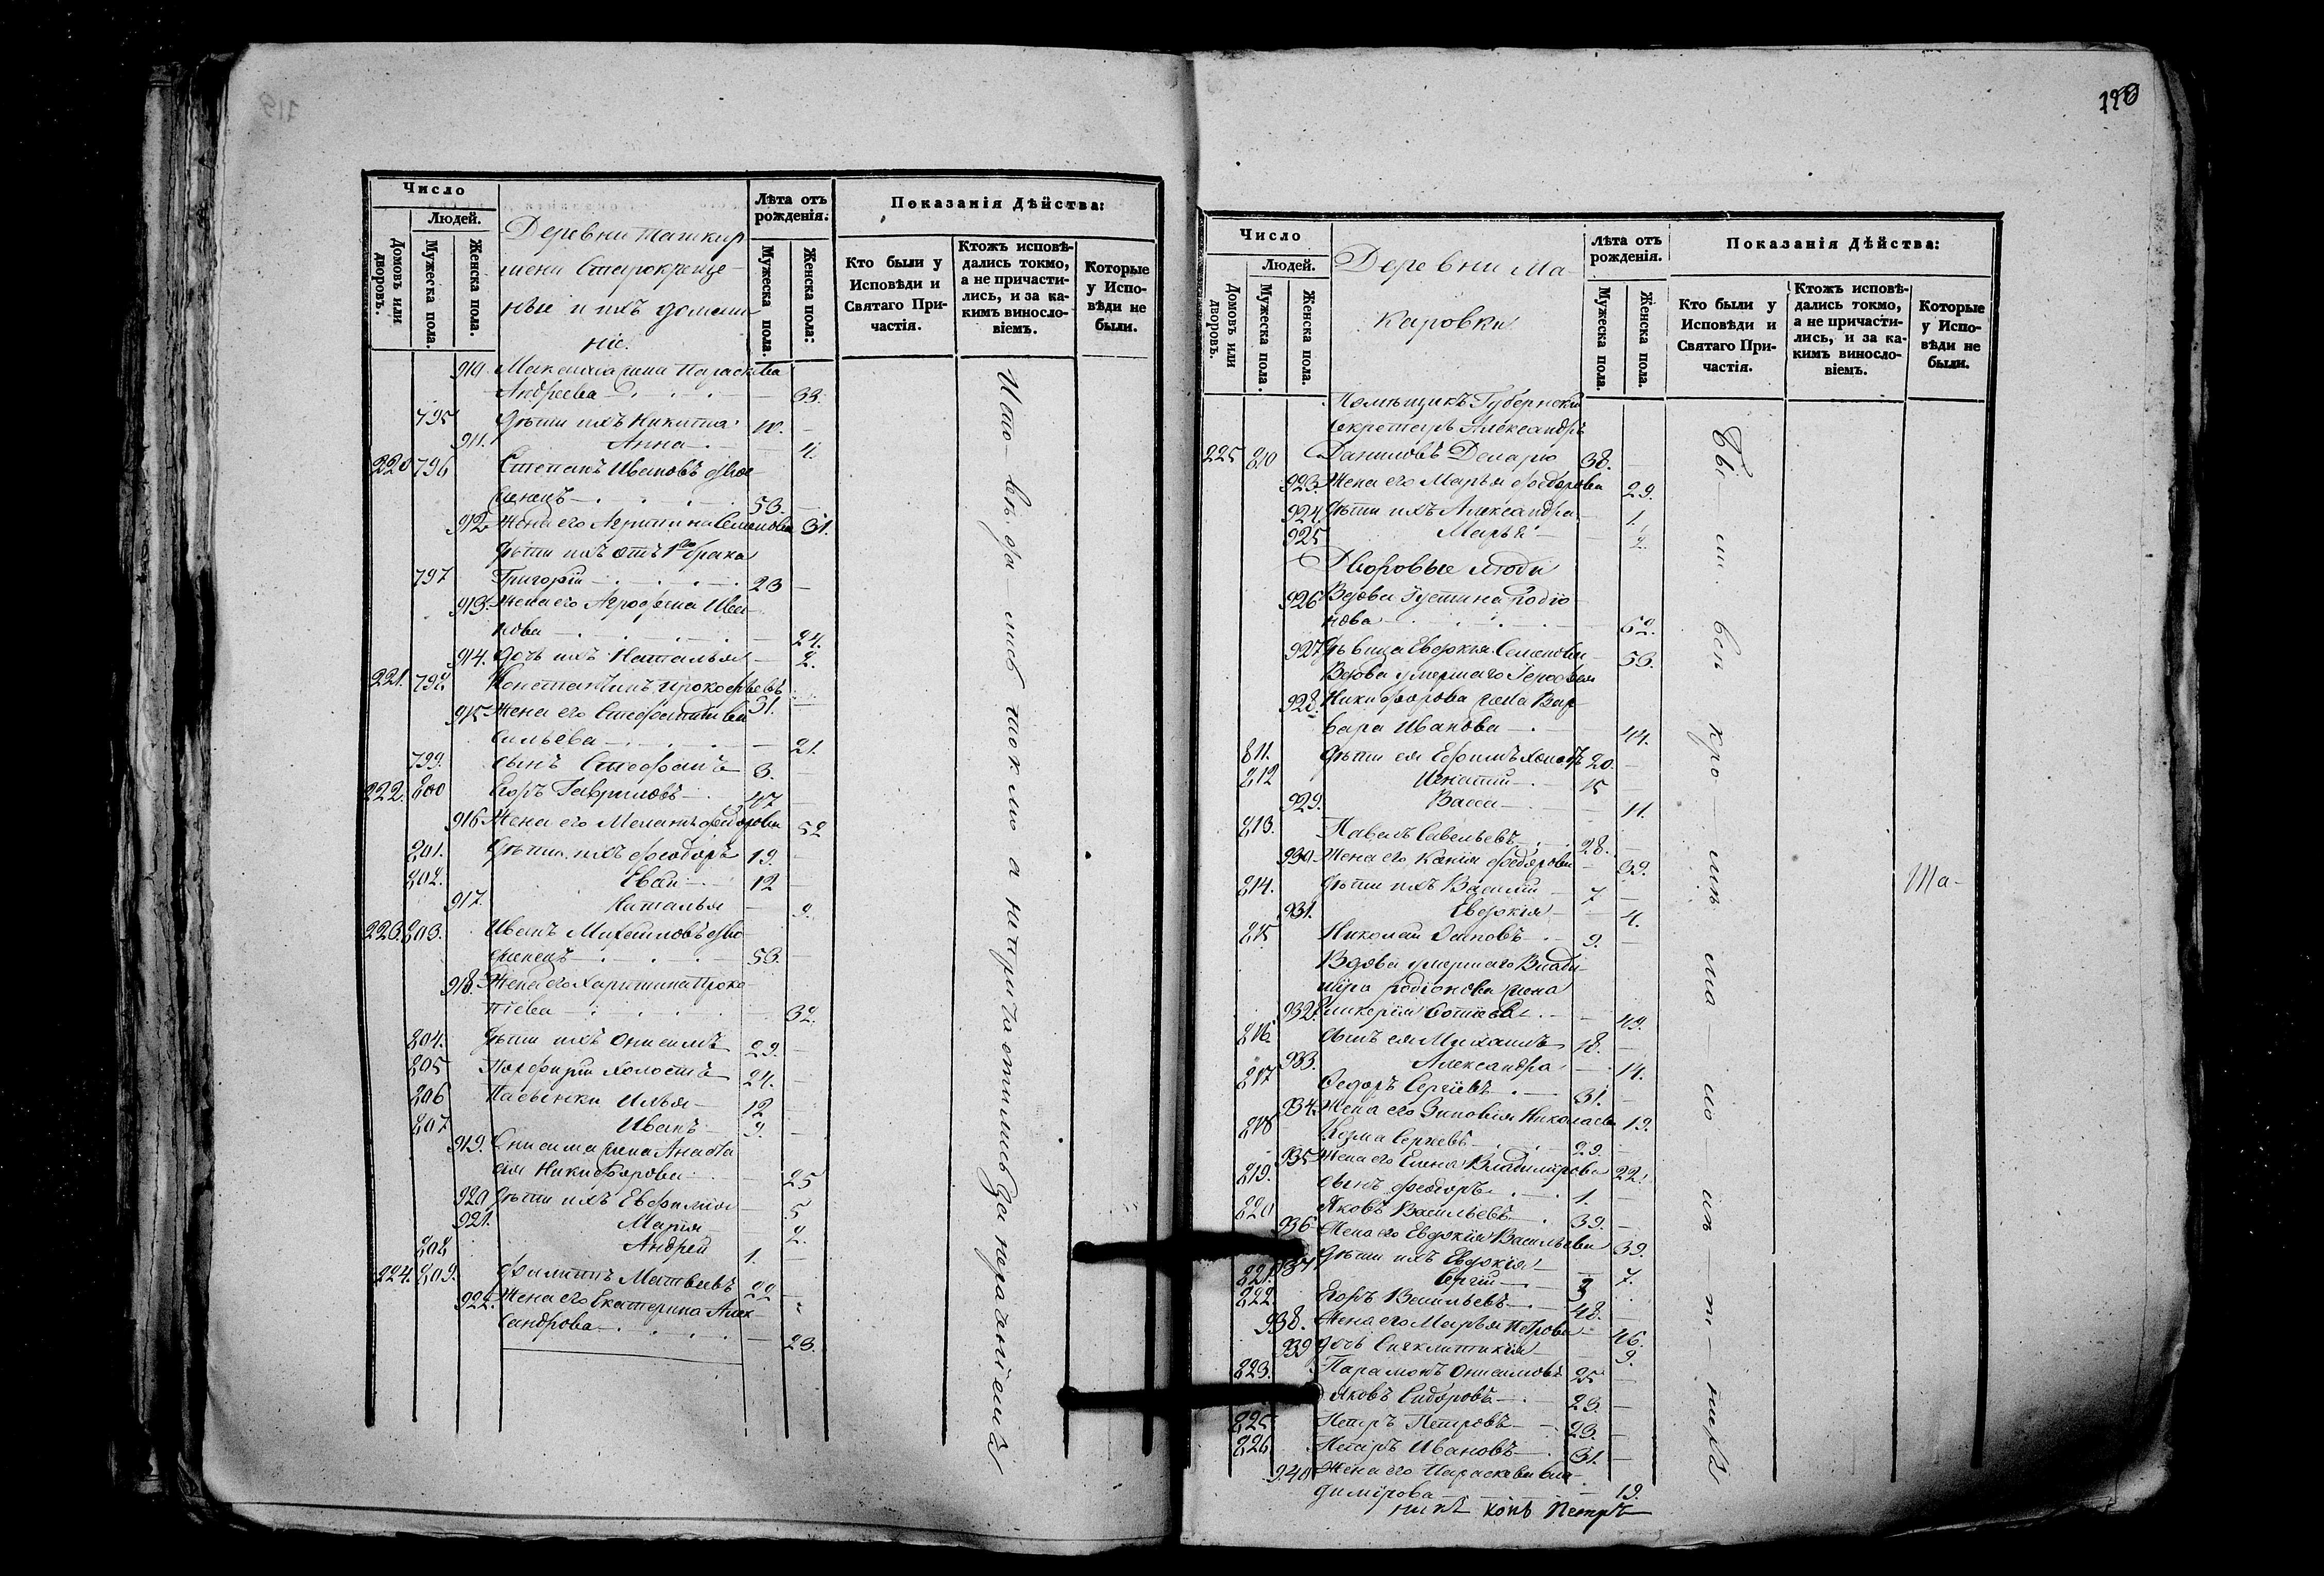 Число
Людей.
Домовъ или дворовъ.
Мужеска пола.
Женска пола.
Деревни Ташкир
мени Старокреще-
ные и ихъ домаш
ніе.
Лѣта отъ рожденія:
Мужеска пола.
Женска пола:
Показанія Дѣйства:
Кто были у Исповѣди и Святаго Причастія.
Ктожъ исповѣдались токмо, а не причастились, и за какимъ винословіемъ.
Которые у Исповѣди не были.
910 Максима жена Параскева
Андреева 33.
795 Дѣти ихъ Никита 10.
911. Анна 4.
220 796 Степанъ Ивановъ двое
женецъ 53.
912 Жена его Агрипина Семенова 31.
Дѣти ихъ отъ 1го брака
797 Григорій 23
913. Жена его Агрофена Ива
нова 24.
914. Дочь ихъ Наталья 2.
221. 798 Константинъ Прокофьевъ 31.
915 Жена его Стефанида Ва
сильева 21.
799. Сынъ Стефанъ 3.
222. 800 Егоръ Гавриловъ 47
916 Жена его Меланья Федорова 52
801. Дѣти ихъ Феодоръ 19.
802. Иванъ 12
917. Наталья 9.
223. 803. Иванъ Михайловъ дво
еженецъ 53.
918. Жена его Харитина Проко
піева 32.
804. Дѣти ихъ Онисимъ 29.
805 Порфирій холостъ 24.
806 Пасынки Илья 12
807 Иванъ 9.
919. Онисима жена Анаста
сія Никифорова 25
920 Дѣти ихъ Евфимія 5
921. Марія 2.
808 Андрей 1.
224. 809. Филиппъ Матвеевъ 22
922. Жена его Екатерина Алек
сандрова 23.
Испо-вѣ-да-лись токмо а не причастились за нераченіемъ
Число
Людей.
Домовъ или дворовъ.
Мужеска пола.
Женска пола.
Деревни Ма-
каровки
Лѣта отъ рожденія.
Мужеска пола.
Женска пола.
Показанія Дѣйства:
Кто были у Исповѣди и Святаго Причастія.
Ктожъ исповѣдались токмо, а не причастились, и за какимъ винословіемъ.
Которые у Исповѣди не были.
Помѣщикъ Губернскій
Секретарь Александръ
225 810 Даниловъ 38.
923. Жена его Марья Федорова 29.
924. Дѣти ихъ Александра 1.
925 Марья 2.
Дворовые люди
926 Вдова Устина Родіо
нова 62.
927 Дѣвица Евдокія Семенова 53.
Вдова умершаго Герофея
928. Никифорова жена Вар
вара Иванова 44.
811. Дѣти ея Ефимъ холостъ 20.
812 Игнатій 15
929. Васса 11.
813. Павелъ Савельевъ 28.
930 Жена его Ксенія Федорова 39.
814. Дѣти ихъ Василій 7
931. Евдокія 4.
815 Николай Осиповъ 9.
Вдова умершаго Влади
міра Родіонова жена
932. Гликерія 49.
816 Сынъ ея Михаилъ 18.
933. Александра 14.
817 Федоръ Сергіевъ 31.
934. Жена его Зиновія Николаева 19.
818 Козма Сергіевъ 29.
935 Жена его Елена Владимірова 22.
819. Сынъ Феодоръ 1.
820 Яковъ Васильевъ 39.
936 Жена его Евдокія Васильева 39.
937 Дѣти ихъ Евдокія 7.
821. Сергій 3
822 Егоръ Васильевъ 48.
938. Жена его Марья Петрова 46.
939 Дочь Синклитикія 9.
823. Парамонъ Онисимовъ 25
Яковъ Сидоровъ 23.
825 Петръ Петровъ 23.
826 Петръ Ивановъ 31.
940 Жена его Параскева Вла-
димірова 19.
Та-
никъ Копъ Петръ